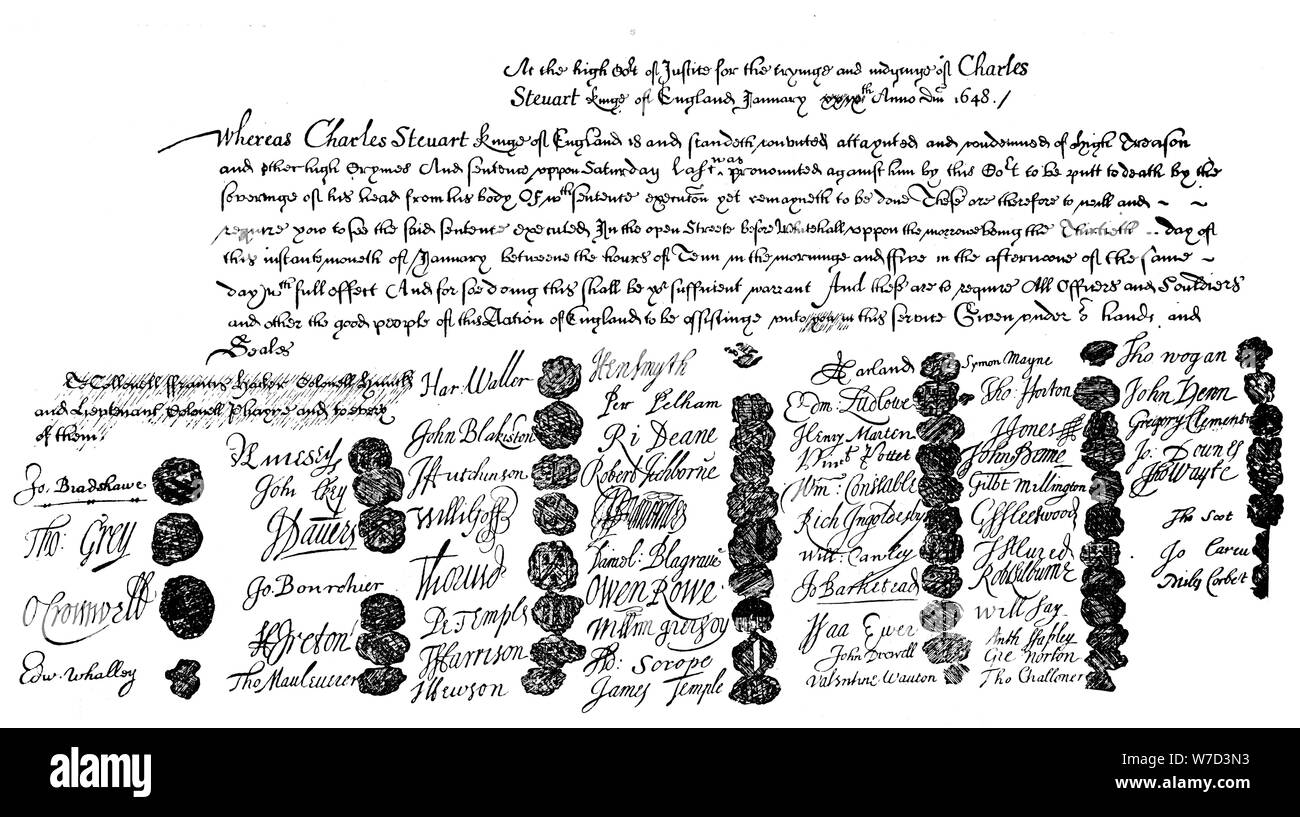 At the high Cort of Justice for the tryinge and iudginge of Charles
Steuart Kinge of England January xxixth Anno Dm 1648./
Whereas Charles Steuart Kinge of England is and standeth convicted attaynted and condemned of High Treason
and other high Crymes And sentence uppon Saturday last was pronounced against him by this Cort to be putt to death by the
severinge of his head from his body Of wch sentence execucon yet remayneth to be done These are therefore to will and
require you to see the said sentence executed In the open Streete before Whitehall uppon the morrowe being the Thirtieth day of
this instante moneth of January betweene the hours of Tenn in the morninge and ffive in the afternoone of the same
day wth full effect And for soe doing this shall be yor sufficient warrant And these are to require All Officers and Souldiers
and other the good people of this Nation of England to be assistinge unto you in this service Given under or hands and
Seales
To Collonell ffrancis Hacker Colonell Huncks
and Lieutenant Colonell Phayre and to every
of them.
Jo. Bradshawe
Tho: Grey
O Cromwell
Edw. Whalley
M Livesey
John Okey
J Dauers
Jo. Bourchier
H Ireton
Tho Mauleuerer
Har Waller
John Blakiston
J Hutchinson
Willi Goff
Tho Pride
Pe Temple
T Harrison
J Hewson
Hen Smyth
Per Pelham
Ri Deane
Robert Tichborne
Daniel Blagrave
Owen Rowe
Willm Purefoy
Tho: Scrope
James Temple
A Garland
Edm: Ludlowe
Henry Marten
Vint Potter
Wm: Constable
Rich Ingoldesby
Will: Cawley
Jo Barkestead
Isaa Ewer
John Dixwell
Valentine Wauton
Symon Mayne
Tho: Horton
J Jones
John Moore
Gilbt Millington
G ffleetwood
J Alured
Rob Lilburne
Will Say
Anth Stapley
Gre Norton
Tho Challoner
Tho Wogan
John Venn
Gregory Clement
Jo: Downes
Tho Wayte
Tho Scot
Jo Carew
Miles Corbet
alamy
W7D3N3
www.alamy.com